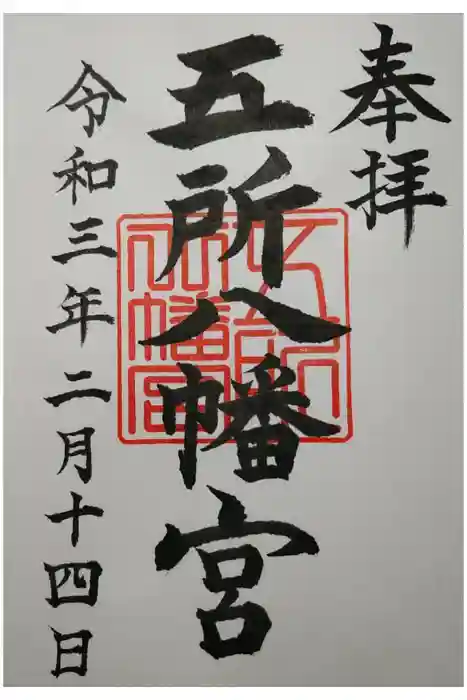 奉拝
五所八幡宮
令和三年二月十四日
五所八幡宮